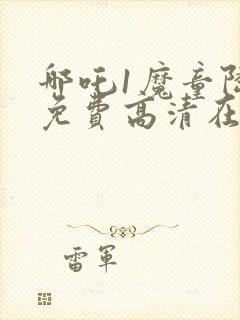 哪吒1魔童降
免費高清在
雷軍